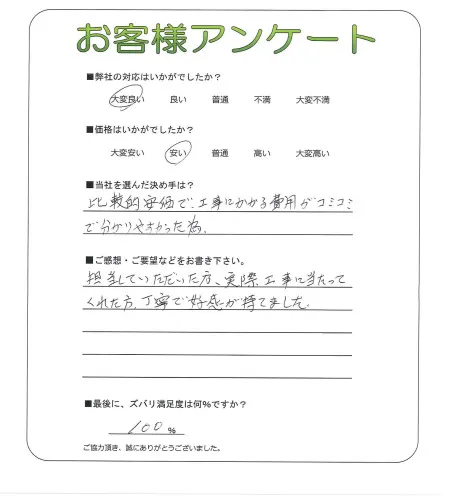 お客様アンケート
■弊社の対応はいかがでしたか?
大変良い 良い 普通 不満 大変不満
■価格はいかがでしたか?
大変安い 安い 普通 高い 大変高い
■当社を選んだ決め手は?
比較的安価で、工事にかかる費用がコミコミ
で分かりやすかった為。
■ご感想・ご要望などをお書き下さい。
担当していただいた方、実際工事に当たって
くれた方、丁寧で好感が持てました。
■最後に、ズバリ満足度は何%ですか?
100%
ご協力頂き、誠にありがとうございました。